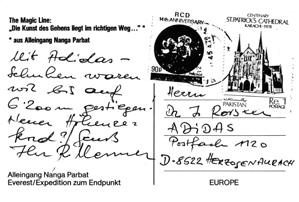 The Magic Line:
„Die Kunst des Gehens liegt im richtigen Weg...“*
* aus Alleingang Nanga Parbat
Mit Adidas-
Schuhen waren
wir bis auf
6200m gestiegen.
Neuer Höhenre-
kord? Gruß
Ihr R Messner
Alleingang Nanga Parbat
Everest/Expedition zum Endpunkt
RCD
14th ANNIVERSARY
CENTENARY
ST.PATRICK'S CATHEDRAL
KARACHI-1978
PAKISTAN
POSTAGE
Herrn
Dr J
ADIDAS
Postfach 1120
D-8522 HERZOGENAURACH
EUROPE